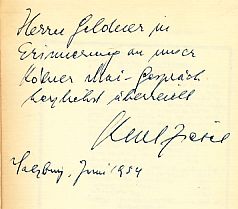 Herrn Geldner in
Erinnerung an unser
Kölner Mai-Gespräch
herzlichst überreicht
Kurt Ziesel
Salzburg, Juni 1954